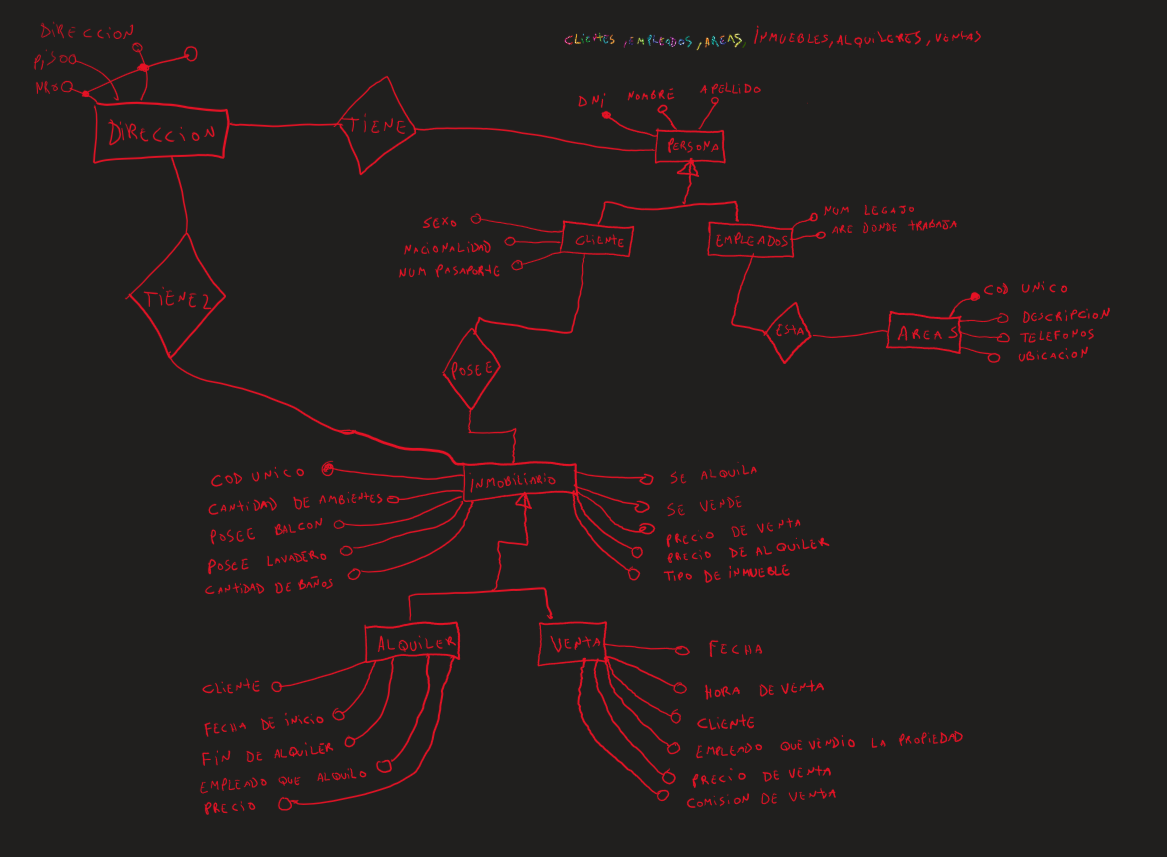 CLIENTES, EMPLEADOS, AREAS, INMUEBLES, ALQUILERES, VENTAS
DIRECCION
PISO
NRO
DIRECCION
TIENE
DNI
NOMBRE
APELLIDO
PERSONA
SEXO
NACIONALIDAD
NUM PASAPORTE
CLIENTE
EMPLEADOS
NUM LEGAJO
ARE DONDE TRABAJA
TIENE2
POSEE
ESTA
AREAS
COD UNICO
DESCRIPCION
TELEFONOS
UBICACION
INMOBILIARIO
COD UNICO
CANTIDAD DE AMBIENTES
POSEE BALCON
POSEE LAVADERO
CANTIDAD DE BAÑOS
SE ALQUILA
SE VENDE
PRECIO DE VENTA
PRECIO DE ALQUILER
TIPO DE INMUEBLE
ALQUILER
CLIENTE
FECHA DE INICIO
FIN DE ALQUILER
EMPLEADO QUE ALQUILO
PRECIO
VENTA
FECHA
HORA DE VENTA
CLIENTE
EMPLEADO QUE VENDIO LA PROPIEDAD
PRECIO DE VENTA
COMISION DE VENTA